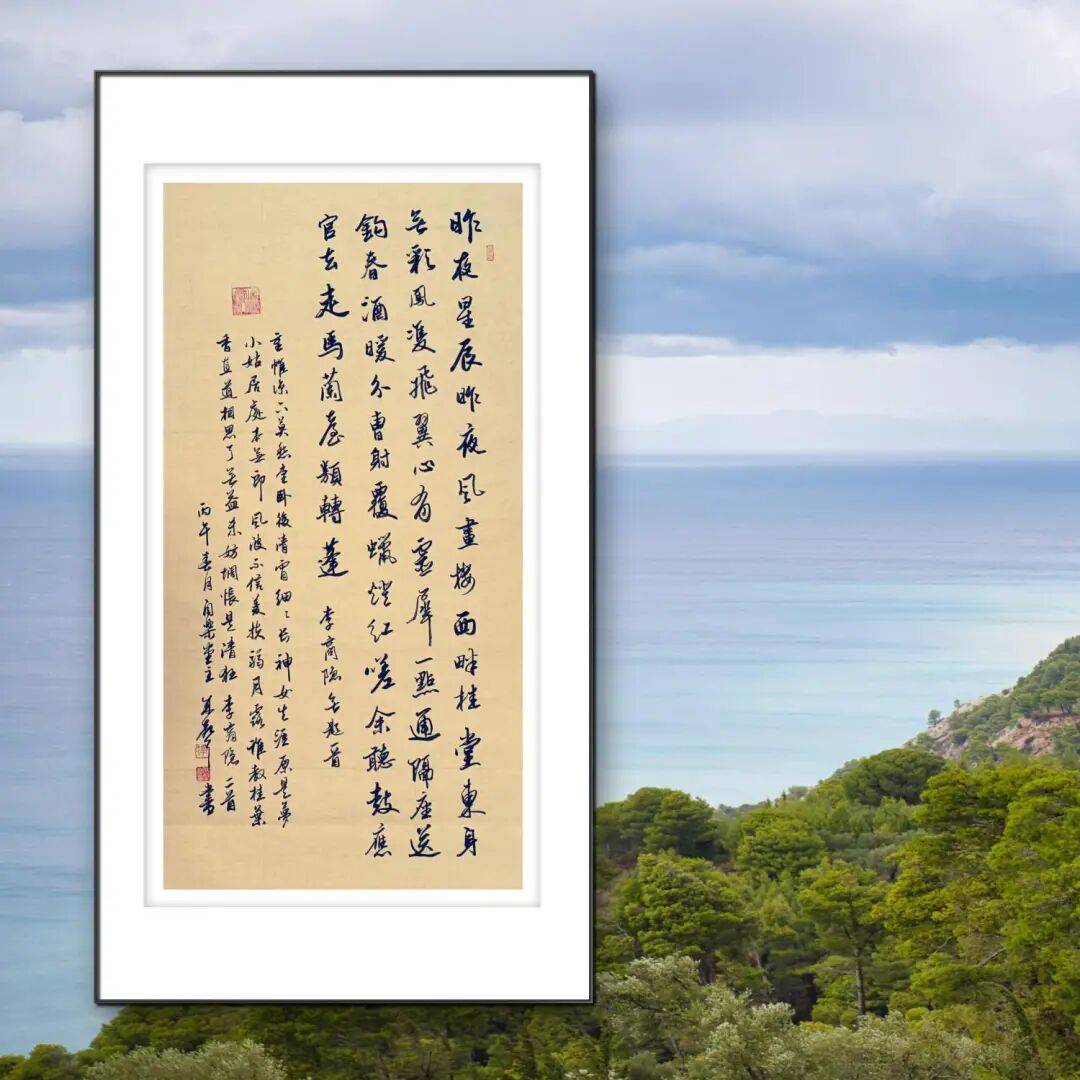 昨夜星辰昨夜風畫樓西畔桂堂東身
無彩鳳雙飛翼心有靈犀一點通隔座送
鈎春酒暖分曹射覆蠟燈紅嗟余聽鼓應
官去走馬蘭臺類轉蓬 李商隐無題首
重帷深下莫愁堂卧後清宵細〻長神女生涯原是夢
小姑居處本無郎風波不信菱枝弱月露誰教桂葉
香直道相思了無益未妨惆悵是清狂 李商隐二首
丙午春月自樂堂主 書